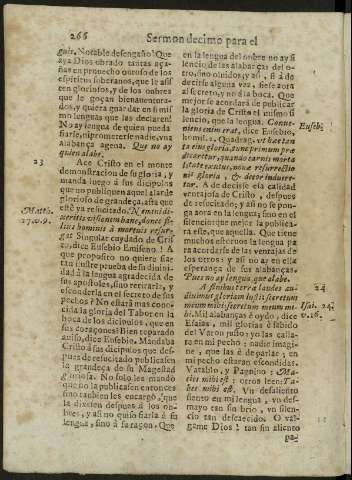 266
Sermon decimo para el
guir. Notable desengaño! Que
aya Dios obrado tantas aça-
ñas en provecho
espiritus soberanos, que le assi
ten gloriosos, y de los onbres
que le goçan bienaventura-
dos, y quiera guardar en si mis-
mo lenguas que las declaren!
No ay lengua de quien pueda
fiarle, ni prometerle nadie, vna
alabança agena. Que no ay
quien alabe.
23
Ace Cristo en el monte
demonstracion de su gloria, y
manda luego à sus dicipulos
que no publiquen aquel alarde
glorioso de grandeça, asta que
esté ya resucitado. Nemini di-
Matth.
xeritis visionem hanc, donec fi-
17. v. 9.
lius hominis à mortuis resur-
gat Singular cuydado de Cris-
to, dice Eusebio Emiseno! A
que proposito no quiere fiar
tan ilustre prueba de su divini-
dad à la lengua agradecida de
sus apostoles, sino retirarla, y
esconderla en el secreto de sus
pechos? No estará mas cono-
cida la gloria del Tabor en la
boca de los dicipulos, que en
sus coraçones! Bien reparado
aviso, dice Eusebio. Mandaba
Cristo à sus dicipulos que des-
pues de resucitado publicassen
la grandeça de su Magestad
gloriosa. No solo les mandò
que no la publicassen entonces
sino tanbien les encargò, que
la dixesen despues à los on-
bres, y assi no quiso fiarla à su
lengua, sino à su raçon. Que
en la lengua del onbre no ay si
lencio de las alabanças del o-
tro, sino olvidos, y assi, si à de
decirse alguna vez, fiese aora
al secreto, y no à la boca. Que
mejor se acordará de publicar
la gloria de Cristo el mismo si-
lencio, que la lengua. Conve-
niens enim erat, dice Eusebio,
Eusebi.
homil. Quadrag. vt hæc tan
ta eius gloria, tunc primùm præ
dicaretur, quando carnis morta
litate exutus, novæ resurrectio
nis gloria, & decor indueretur. A de decirse ela calidad
ventajosa de Cristo, despues
de resucitado, y assi no se pon-
ga aora en la lengua, sino en el
silencio que mejor la publica-
rà este, que aquella. Que tiene
muchos estorvos la lengua pa
ra acordarse de las ventajas de
los otros, y assi no ay en ella
esperança de sus alabanças.
Pues no ay lengua, que alabe.
24
A finibus terræ laudes au-
divimus gloriam iusti: secretum
Isai. 24.
meum mihi, secretum meum mi-
v. 16.
hi. Mil alabanças è oydo, dice
Esaias, mil glorias è sabido
del Varon justo; yo las calla-
re en mi pecho; nadie imagi-
ne, que las è de parlar; en
mi pecho estarán escondidas.
Vatablo, y Pagnino: Ma-
cies mihi est: otros leen: Ta-
bes mihi est. Vn desaliento
siento en mi lengua, vn des-
mayo tan sin brio, vn silen-
cio tan descaecido. O val-
game Dios! tan sin aliento
pa-